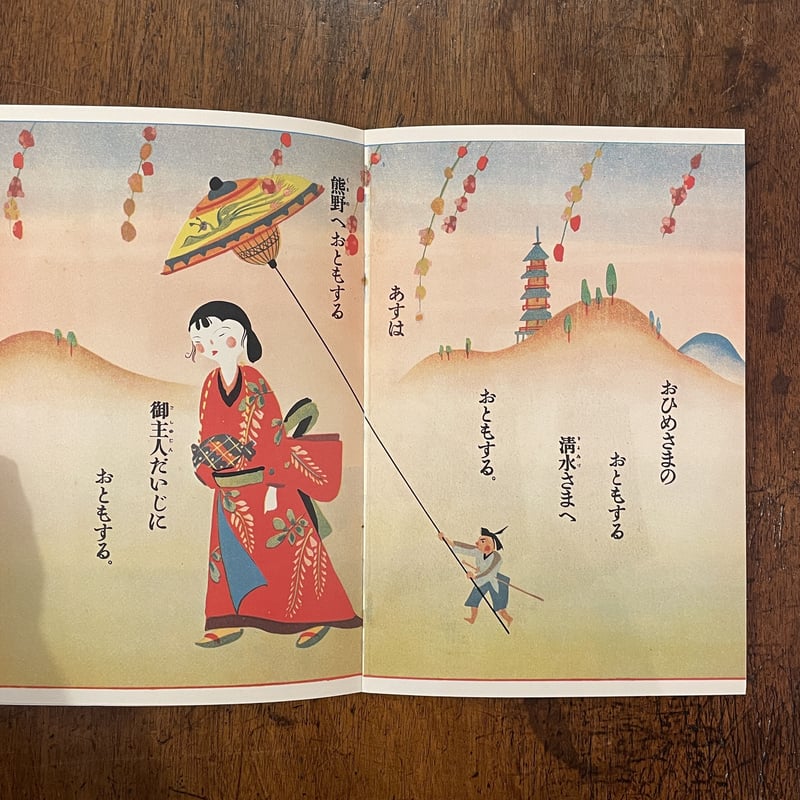 おひめさまの
おともする
清水さまへ
おともする。
あすは
熊野へおともする
御主人だいじに
おともする。